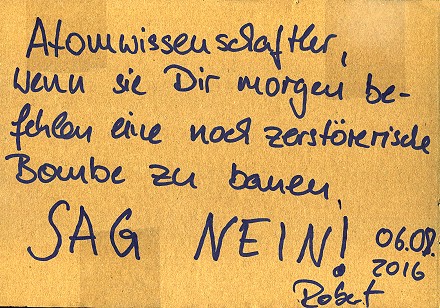 Atomwissenschaftler,
wenn sie Dir morgen be-
fehlen eine noch zerstörerische
Bombe zu bauen,
SAG NEIN! 06.08.
2016
Robert